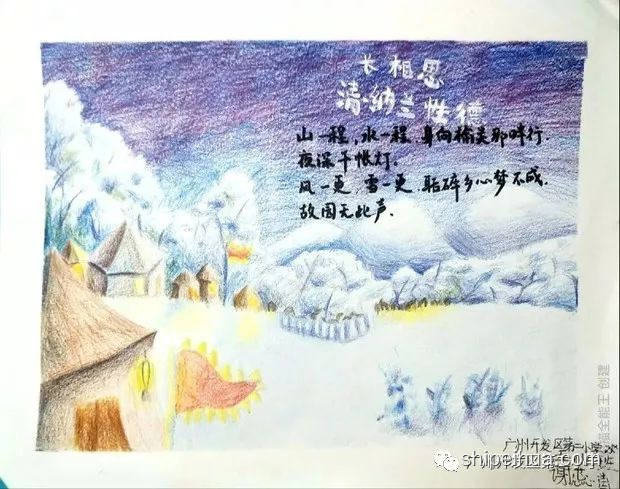 长相思
清·纳兰性德
山一程,水一程.身向榆关那畔行.
夜深千帐灯。
风一更,雪一更.聒碎乡心梦不成.
故园无此声.
广州开发区第一小学
shipeihua.com
描全能王 创建